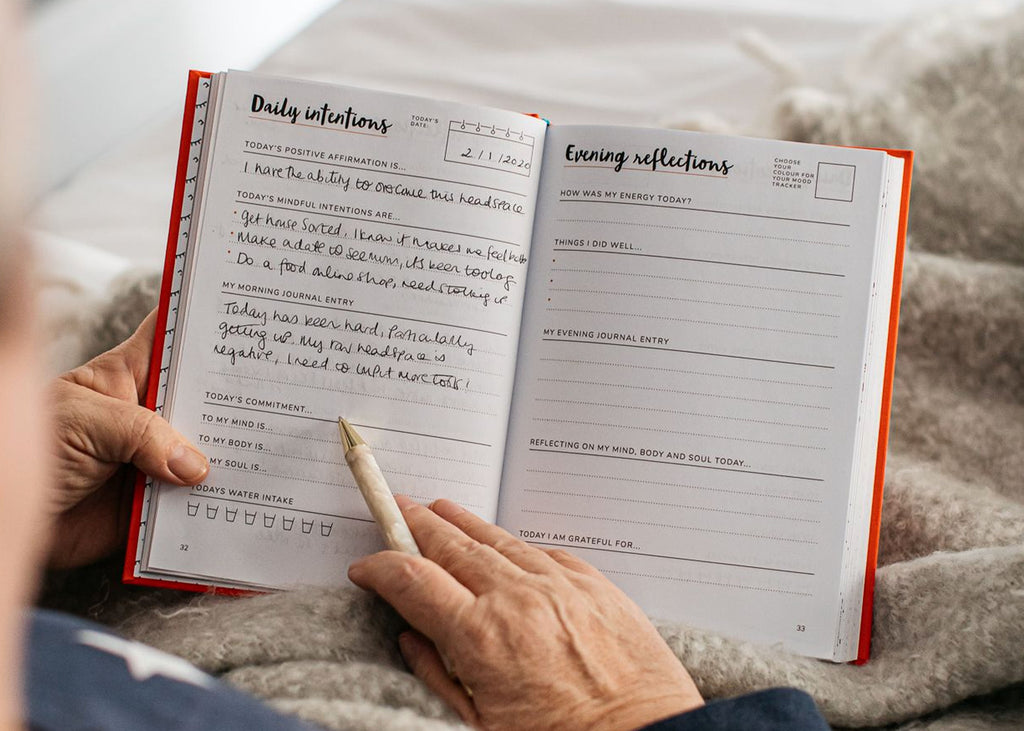 Daily intentions
TODAY'S
DATE:
2/1/2020
TODAY'S POSITIVE AFFIRMATION IS...
I have the ability to overcome this headspace
TODAY'S MINDFUL INTENTIONS ARE...
• get house sorted, I know it makes me feel better
• Make a date to see mum, its been too long
• Do a food online shop, need stocking up
MY MORNING JOURNAL ENTRY
Today has been hard, particularly
getting up. My raw headspace is
negative, I need to input more tools!
TODAY'S COMMITMENT...
TO MY MIND IS...
TO MY BODY IS...
MY SOUL IS...
TODAYS WATER INTAKE
32
Evening reflections
CHOOSE
YOUR
COLOUR FOR
YOUR MOOD
TRACKER
HOW WAS MY ENERGY TODAY?
THINGS I DID WELL...
MY EVENING JOURNAL ENTRY
REFLECTING ON MY MIND, BODY AND SOUL TODAY...
TODAY I AM GRATEFUL FOR...
33